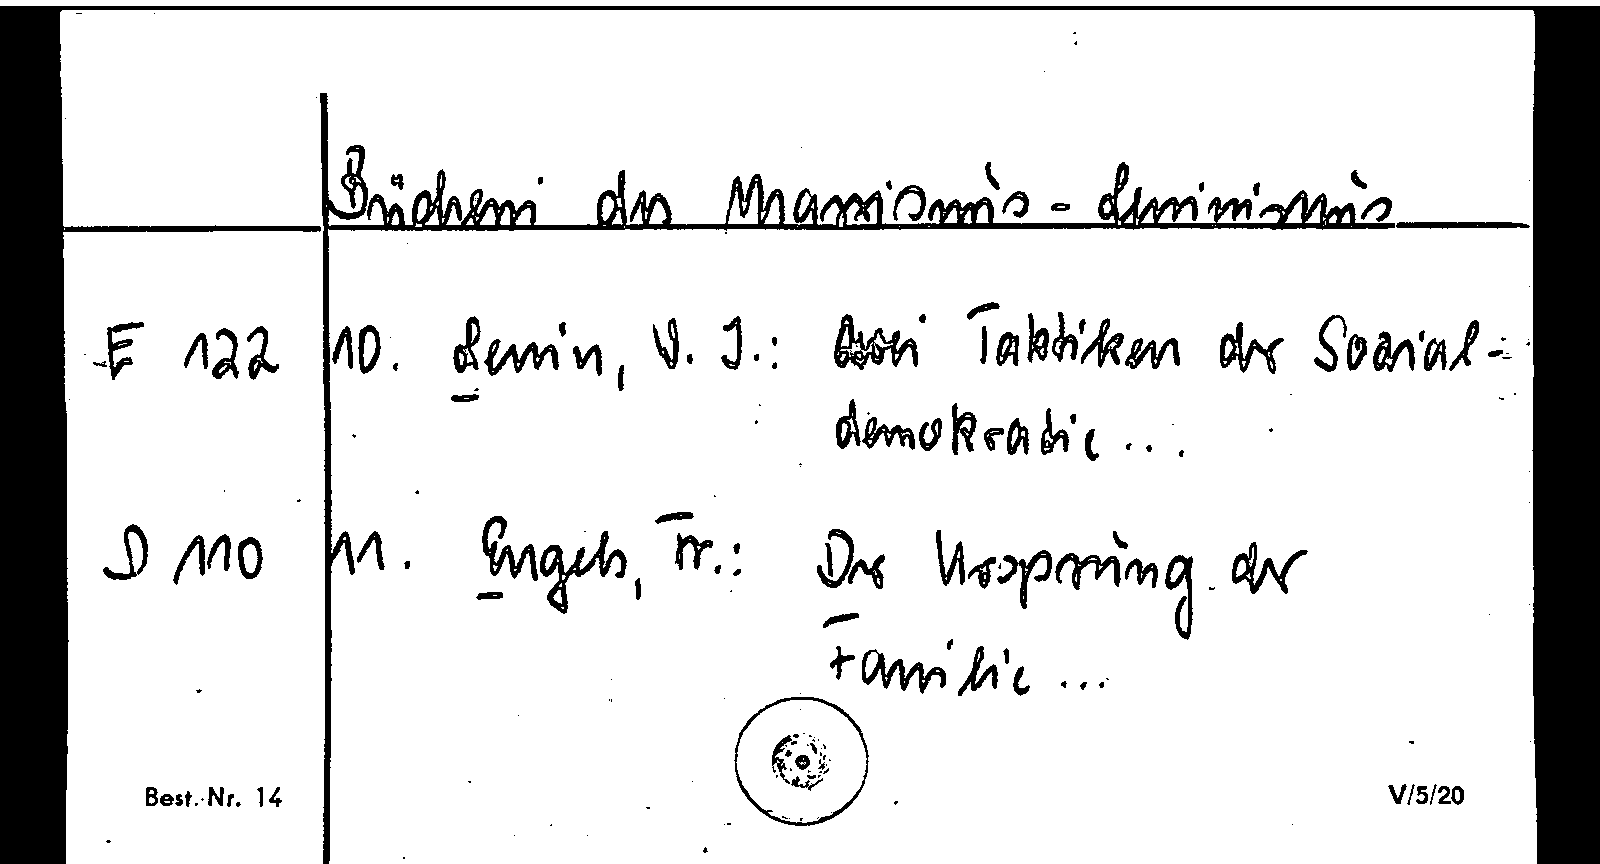 Bücherei des Marxismus-Leninismus
E 122 10. Lenin, W. I.: Zwei Taktiken der Sozial-
demokratie...
D 110 11. Engels, Fr.: Der Ursprung der
Familie...
Best.-Nr. 14 V/5/20